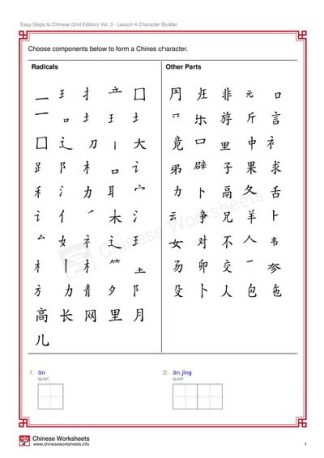 Easy Steps to Chinese (2nd Edition) Vol. 3 - Lesson 4 Character Builder
Choose components below to form a Chines character.
Radicals Other Parts
扌 囗 非 元 口
乐 斿 斤 言
囗 辶 刀 大 竟 口 里 中
阝 礻 口 讠 弟 辟 子 果 求
禾 氵 力 耳 宀 力 卜 鬲 夂 舌
讠 亻 木 氵 云 争 兄 羊 卜
女 礻 辶 王 女 对 不 人
木 卯 交 参
方 力 青 夕 阝 殳 卜 人 包
高 长 网 里 月
儿
Chinese Worksheets
1. ān
quiet
2. ān jìng
quiet
Chinese Worksheets
www.chineseworksheets.info
1